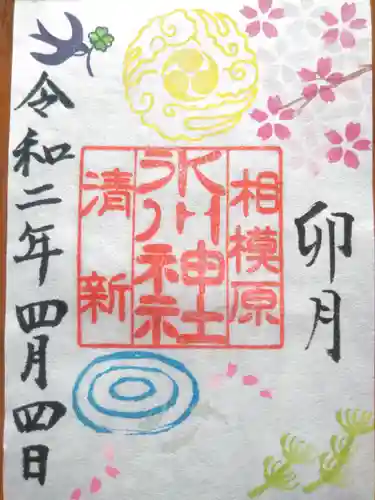 卯月
相模原
氷川神社
清新
令和二年四月四日